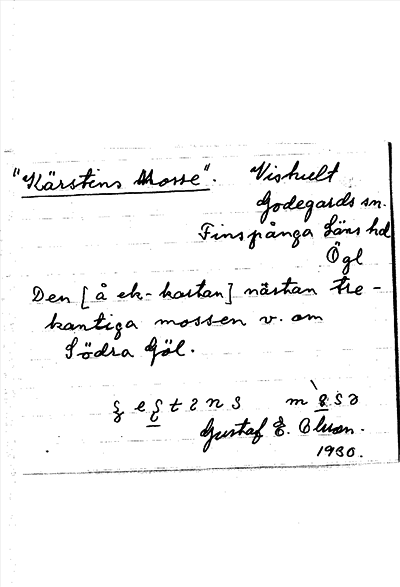 "Kärstens Mosse". Vishult
Godegards sn.
Finspånga Läns hd
Ögl
Den [å ek-kartan] nästan tre-
kantiga mossen v. om
Södra Göl.
Gustaf E. Olsson.
1930.